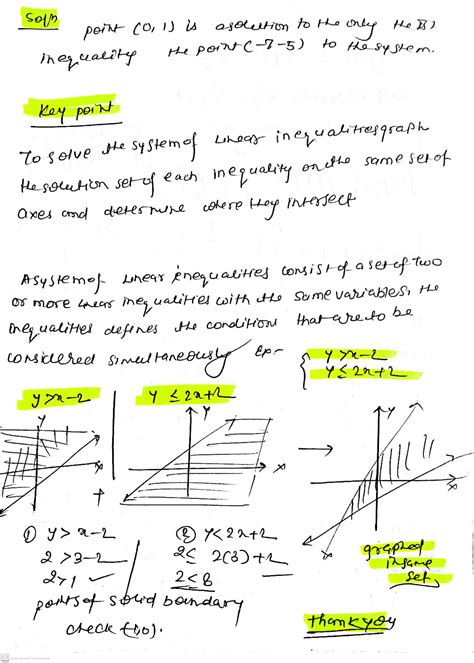 Soln point (0,1) is a solution to the only the II)
inequality the point (-7-5) to the system.
Key point
To solve the system of linear inequalities graph
the solution set of each inequality on the same set of
axes and determine where they intersect
A system of linear inequalities consist of a set of two
or more linear inequalities with the same variables, the
inequalities defines the condition that are to be
considered simultaneously Ex:-
y>x-2
y≤2x+2
y>x-2
y ≤ 2x+2
y
x
y
x
y
x
① y > x-2
2 > 3-2
2>1 ✓
② y<2x+2
2≤ 2(3)+2
2≤8
points of solid boundary
check
graphed
in same
set
thank you